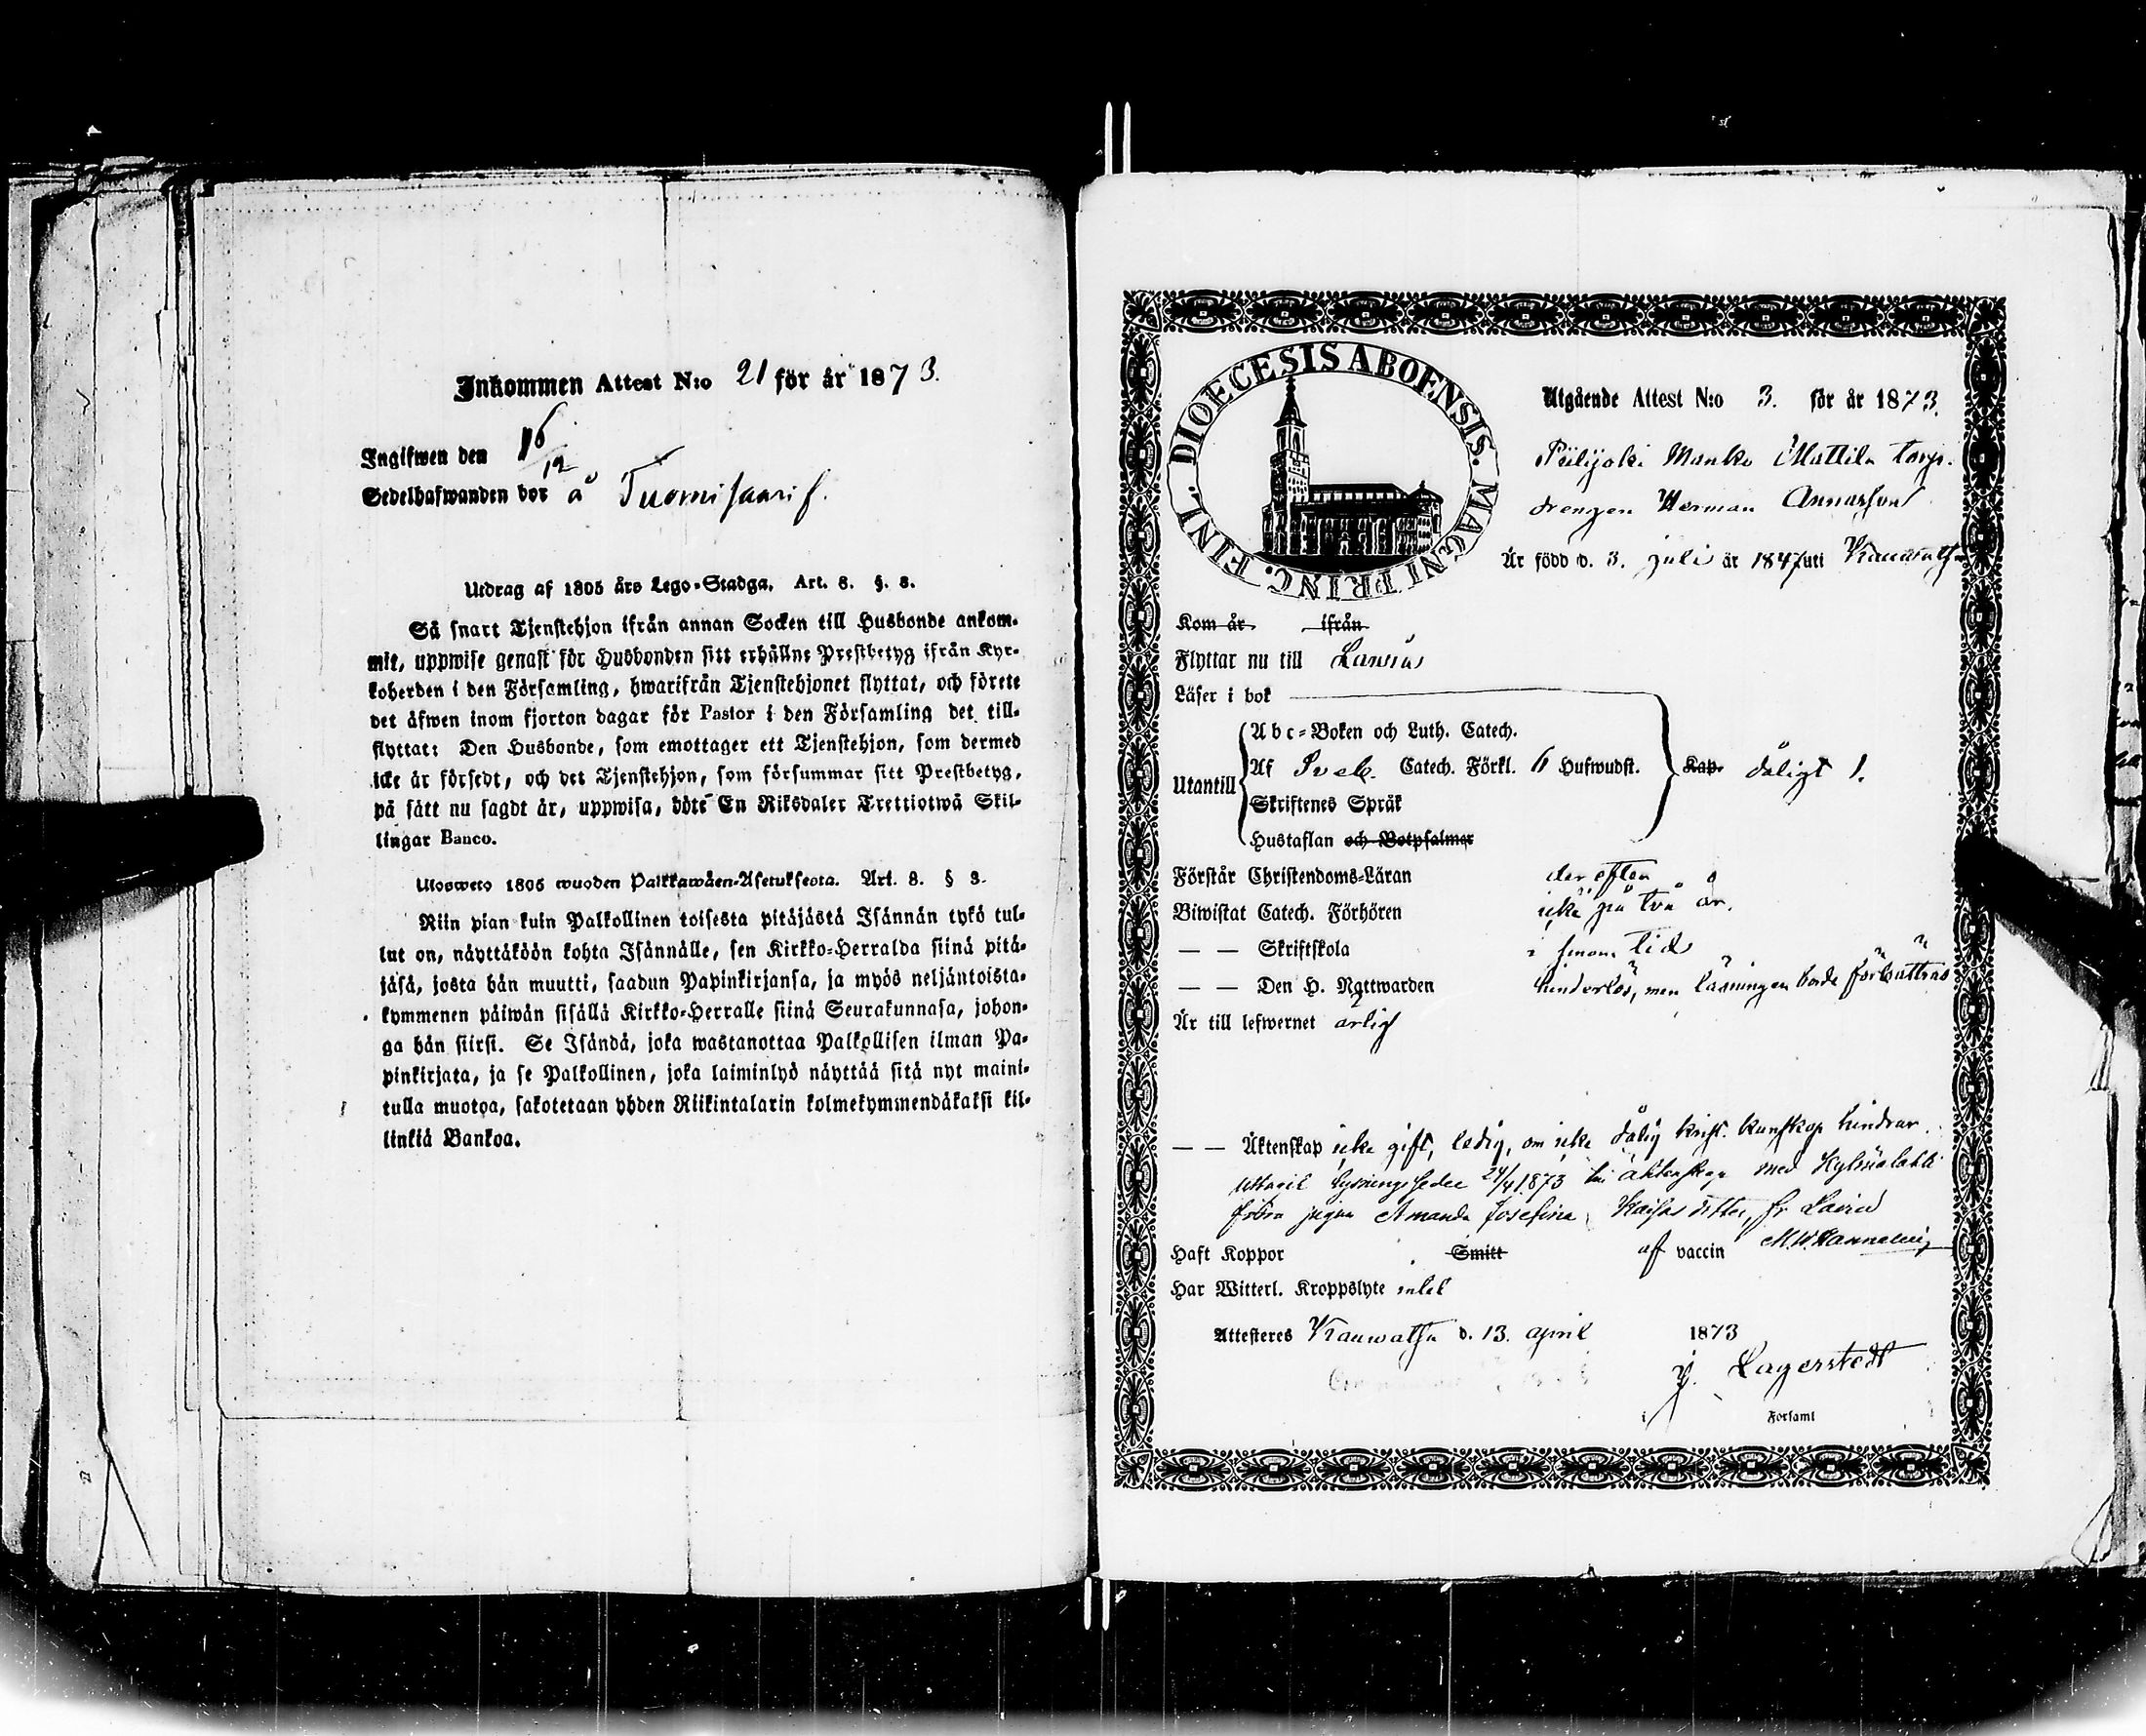 Inkommen Attest N:o 21 för år 1873.
Ingifwen den 16/12
Sedelhafwanden bor å Tuomisaari
Utdrag af 1805 års Lego-Stadga. Art. 8. §. 8.
Så snart Tjenstehjon ifrån annan Socken till Husbonde ankom-
mit, uppwise genast för Husbonden sitt erhållne Prestbetyg ifrån Kyr-
koherden i den Församling, hwarifrån Tjenstehjonet flyttat, och förete
det äfwen inom fjorton dagar för Pastor i den Församling det till-
flyttat: Den Husbonde, som emottager ett Tjenstehjon, som dermed
icke är försedt, och det Tjenstehjon, som försummar sitt Prestbetyg,
på sätt nu sagdt är, uppwisa, böte En Riksdaler Trettiotwå Skil-
lingar Banco.
Uloswето 1805 wuoden Palkkawäen-Asetuksesta. Art. 8. § 8.
Niin pian kuin Palkollinen toisesta pitäjästä Isännän tykö tul-
lut on, näyttäköön kohta Isännälle, sen Kirkko-Herralda siinä pitä-
jäsä, josta hän muutti, saadun Papinkirjansa, ja myös neljäntoista-
kymmenen päiwän sisällä Kirkko-Herralle siinä Seurakunnasa, johon-
ga hän siirsi. Se Isändä, joka wastanottaa Palkollisen ilman Pa-
pinkirjata, ja se Palkollinen, joka laiminlyö näyttää sitä nyt maini-
tulla muotoa, sakotetaan yhden Riikintalarin kolmekymmendäkaksi kil-
linkiä Bankoa.
DIOECESIS ABOENSIS. MAGNI PRINC. FINL.
Utgående Attest N:o 3. för år 1873.
Piilijoki Manko Mattila torp.
drengen Herman Annasson
Är född d. 3. juli år 1847 uti Kauwatsa
Kom år ifrån
Flyttar nu till Lavia
Läser i bok
Abc-Boken och Luth. Catech.
Utantill Af Sveb. Catech. Förkl. 6 Hufwudst. Kap. dåligt 1.
Skriftenes Språk
Hustaflan och Botpsalmer
Förstår Christendoms-Läran derefter
Biwistat Catech. Förhören icke på två år.
— — Skriftskola i sinom tid
— — Den H. Nattwarden hinderlös, men läsningen borde förbättras
Är till lefwernet ärlig
— — Äktenskap icke gift, ledig, om icke dålig krist. kunskap hindrar.
Uttagit lysningssedel 24/4 1873 till äktenskap med
jigan Amanda Josefina Kaisas dotter, fr. Lavia
Haft Koppor Smitt af vaccin
Har Witterl. Kroppslyte intet
Attesteres Kauwatsa d. 13. april 1873
J. Lagerstedt
i Forsaml